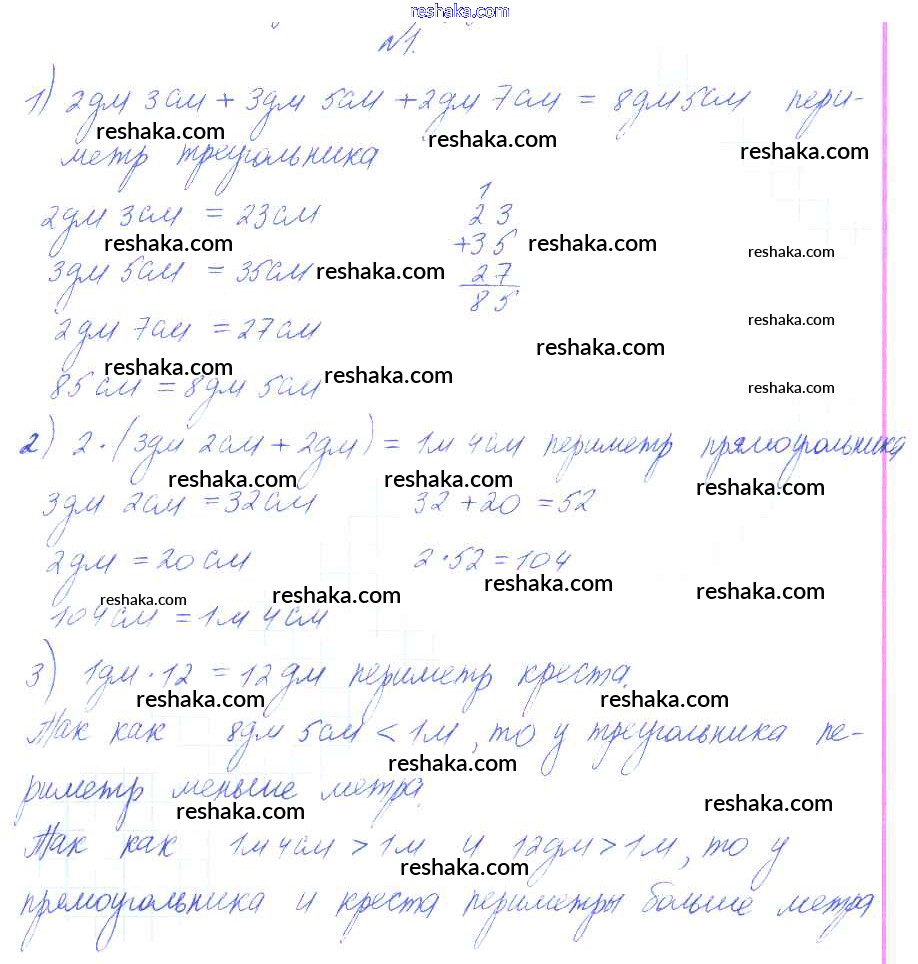 reshaka.com
№1.
1) 2дм 3см + 3дм 5см + 2дм 7см = 8дм 5см пери-
reshaka.com reshaka.com reshaka.com
метр треугольника
2дм 3см = 23см
1
23
reshaka.com +35 reshaka.com reshaka.com
3дм 5см = 35см reshaka.com 27
85
2дм 7см = 27см reshaka.com
reshaka.com reshaka.com
reshaka.com reshaka.com
85см = 8дм 5см
2) 2·(3дм 2см + 2дм) = 1м 4см периметр прямоугольника
reshaka.com reshaka.com reshaka.com
3дм 2см = 32см 32 + 20 = 52
2дм = 20см 2·52 = 104
reshaka.com reshaka.com reshaka.com reshaka.com
104см = 1м 4см
3) 1дм·12 = 12дм периметр креста.
reshaka.com reshaka.com
Так как 8дм 5см < 1м, то у треугольника пе-
reshaka.com
риметр меньше метра.
reshaka.com reshaka.com
Так как 1м 4см > 1м и 12дм > 1м, то у
reshaka.com
прямоугольника и креста периметры больше метра